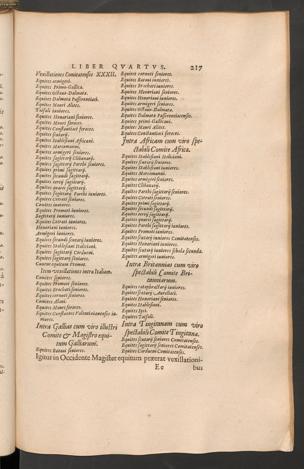 LIBER QVARTVS. 217
Vexillationes Comitatenses XXXII.
Equites armigeri.
Equites Primo-Gallica.
Equites Octauo-Dalmatæ.
Equites Dalmatæ Passerentiaci.
Equites Mauri Alites.
Taifali iuniores.
Equites Honoriani seniores.
Equites Mauri feroces.
Equites Constantiani feroces.
Equites Scutarij.
Equites Stablesiani Africani.
Equites Marcomanni.
Equites armigeri seniores.
Equites sagittarij Clibanarij.
Equites sagittarij Parthi seniores.
Equites primi sagittarij.
Equites secundi sagittarij.
Equites tertij sagittarij.
Equites quarti sagittarij.
Equites sagittarij Parthi iuniores.
Equites Cetrati seniores.
Comites iuniores.
Equites Promoti iuniores.
Sagittarij iuniores.
Equites Cetrati iuniores.
Honoriani iuniores.
Armigeri iuniores.
Equites secundi scutarij iuniores.
Equites Stablesiani Italiciani.
Equites sagittarij Cordueni.
Equites sagittarij seniores.
Cuneus equitum Promot.
Item vexillationes intra Italiam.
Comites seniores.
Equites Promoti seniores.
Equites Brachiati seniores.
Equites cornuti seniores.
Comites Alani.
Equites Mauri feroces.
Equites Constantes Valentinianenses iu-
niores.
Intra Gallias cum viro illustri
Comite & Magistro equi-
tum Galliarum.
Equites Bataui seniores.
Equites cornuti seniores.
Equites Bataui iuniores.
Equites Brachiati iuniores.
Equites Honoriani seniores.
Equites Honoriani iuniores.
Equites armigeri seniores.
Equites Octauo-Dalmatæ.
Equites Dalmatæ Passerentiacenses.
Equites primi Gallicani.
Equites Mauri Alites.
Equites Constantiani feroces.
Intra Africam cum viro spe-
ctabili Comite Africæ.
Equites Stablesiani Italiciani.
Equites Scutarij seniores.
Equites Stablesiani seniores.
Equites Marcomanni.
Equites armigeri seniores.
Equites Clibanarij.
Equites Parthi sagittarij seniores.
Equites Cetrati seniores.
Equites primi sagittarij.
Equites secundi sagittarij.
Equites tertij sagittarij.
Equites quarti sagittarij.
Equites Parthi sagittarij iuniores.
Equites Promoti iuniores.
Equites Scutarij iuniores Comitatenses.
Equites Honoriani iuniores.
Equites Scutarij iuniores schola secunda.
Equites armigeri iuniores.
Intra Britannias cum viro
spectabili Comite Bri-
tanniarum.
Equites cataphractarij iuniores.
Equites Scutarij Aureliaci.
Equites Honoriani seniores.
Equites Stablesiani.
Equites Syri.
Equites Taifali.
Intra Tingitanam cum viro
spectabili Comite Tingitanæ.
Equites Scutarij seniores Comitatenses.
Equites sagittarij seniores Comitatenses.
Equites Cordueni Comitatenses.
Igitur in Occidente Magister equitum præerat vexillationi-
Ee bus